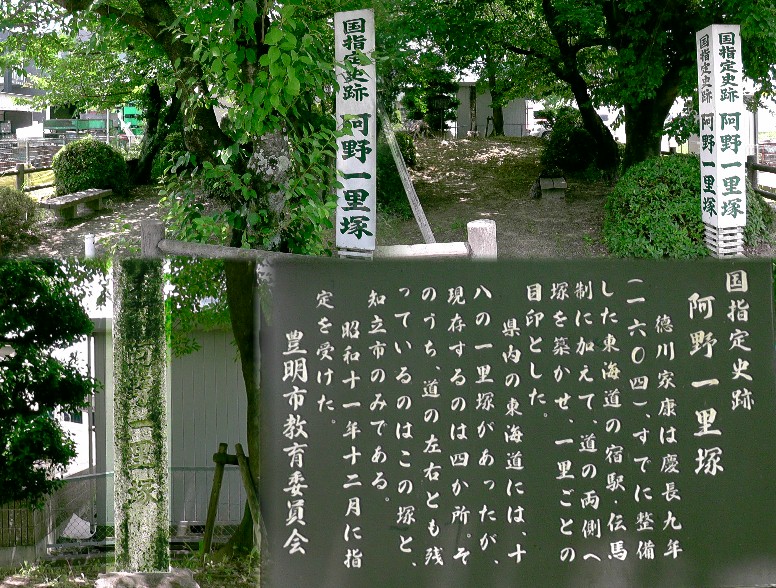 国指定史跡 阿野一里塚
国指定史跡 阿野一里塚
国指定史跡 阿野一里塚
阿野一里塚
国指定史跡
阿野一里塚
徳川家康は慶長九年
(一六〇四)、すでに整備
した東海道の宿駅伝馬
制に加えて、道の両側へ
塚を築かせ、一里ごとの
目印とした。
県内の東海道には、十
八の一里塚があったが、
現存するのは四か所。そ
のうち、道の左右とも残
っているのはこの塚と、
知立市のみである。
昭和十一年十二月に指
定を受けた。
豊明市教育委員会